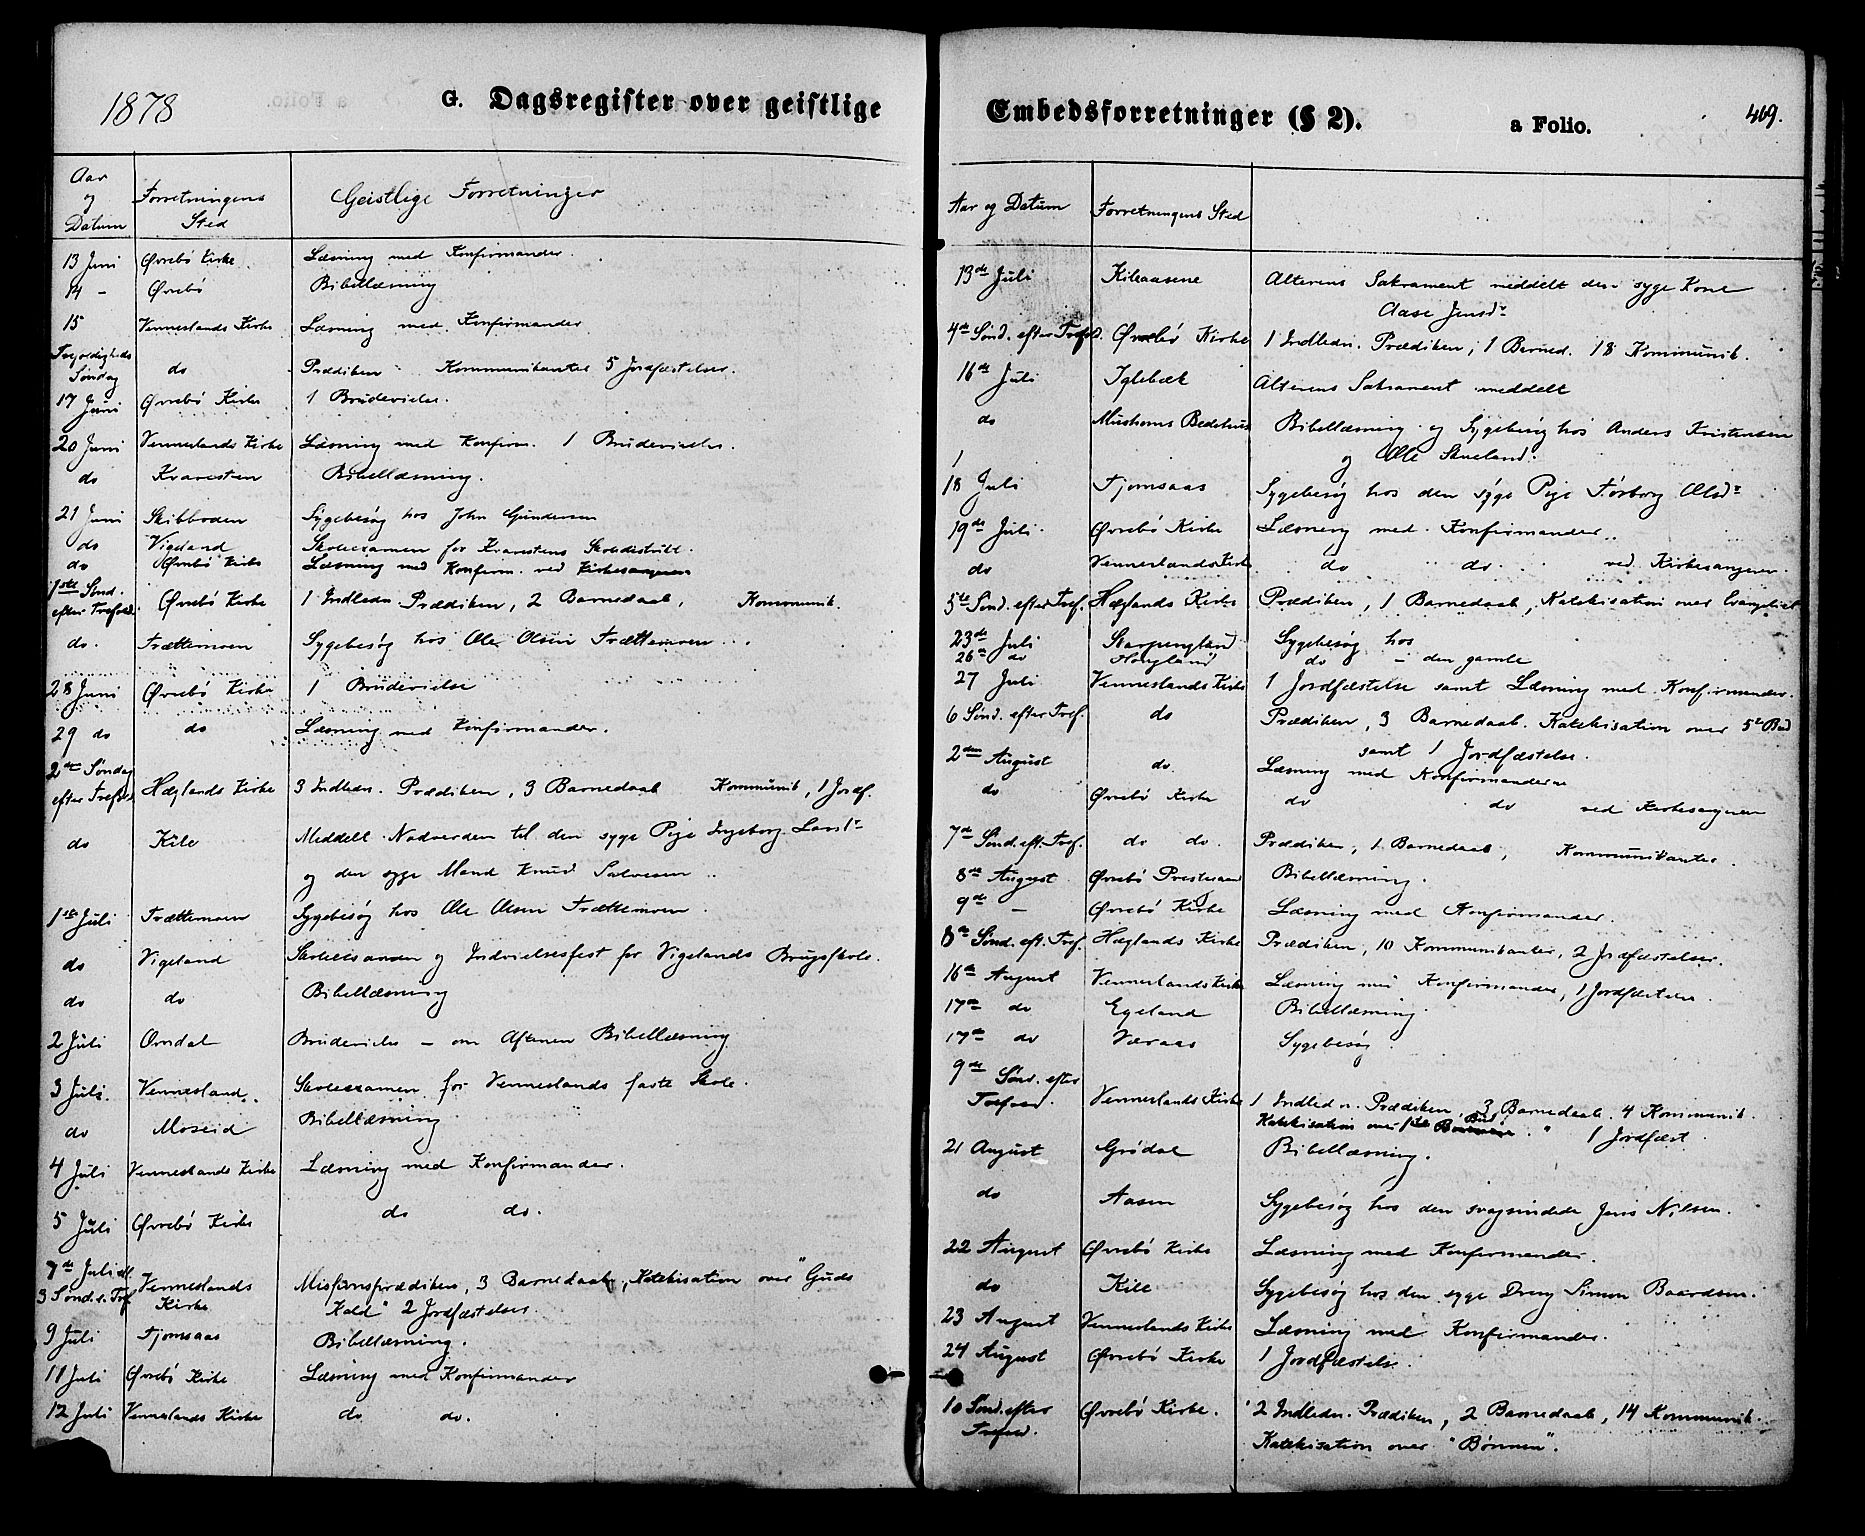 1878
G. Dagsregister over geistlige
Aar og Datum Forretningens Sted Geistlige Forretninger
13 Juni Øvrebö Kirke Læsning med Konfirmander.
14 - Øvrebö Bibellæsning
15 Venneslands Kirke Læsning med Konfirmander
Trefoldigheds Søndag do Prædiken Kommunikanter 5 Jordfæstelser.
17 Juni Øvrebö Kirke 1 Brudevielse.
20 Juni Venneslands Kirke Læsning med Konfirm. 1 Brudevielse.
do Kravesten Bibellæsning.
21 Juni Skibboden Sygebesög hos John Gundersen
do Vigeland Skoleexamen for Kravestens Skoledistrikt.
do Øvrebö Kirke Læsning med Konfirm. ved Kirkesangeren
1ste Sönd. efter Trefold. Øvrebö Kirke 1 Indledn. Prædiken, 2 Barnedaab, Kommunik.
do. Trættemoen Sygebesög hos Ole Olsen Trættemoen
28 Juni Øvrebö Kirke 1 Brudevielse
29 do do Læsning med Konfirmander.
2den Søndag efter Trefold. Hæglands Kirke 3 Indledn. Prædiken, 3 Barnedaab Kommunik, 1 Jordf.
do Kile Meddelt Nadverden til den syge Pige Ingeborg
og den syge Mand Knud Salvesen
1ste Juli Trættemoen Sygebesög hos Ole Olsen Trættemoen.
do Vigeland Skoleexamen og Indvielsesfest for Vigelands Brugsskole.
do do Bibellæsning
2 Juli Omdal Brudevielse – om Aftenen Bibellæsning
3 Juli. Vennesland Skoleexamen for Venneslands faste Skole.
do Moseid Bibellæsning
4 Juli Venneslands Kirke Læsning med Konfirmander.
5 Juli Øvrebö Kirke do do.
7de Juli 3 Sönd. e. Tref. Venneslands Kirke Missionsprædiken, 3 Barnedaab, Katekisation over "Guds
Kald" 2 Jordfæstelser.
9 Juli Fjomsaas Bibellæsning.
11 Juli Øvrebö Kirke Læsning med Konfirmander
12 Juli Venneslands Kirke do do.
Embedsforretninger (§ 2).
a Folio.
469.
Aar og Datum Forretningens Sted
13de Juli Kileaasene Alterens Sakrament meddelt den syge Kone
Aase Jensdr
4de Sönd. efter Trefold. Øvrebö Kirke 1 Indledn. Prædiken, 1 Barned. 18 Kommunik.
16de Juli Iglebæk Alterens Sakrament meddelt
do Mushoms Bedehus Bibellæsning og Sygebesög hos Anders Kristensen
og Ole
18 Juli Fjomsaas Sygebesög hos den syge Pige Torborg Olsdr
19de Juli. Øvrebö Kirke Læsning med Konfirmander
do Venneslands Kirke do do. ved Kirkesangeren
5te Sönd. efter Tref. Hæglands Kirke Prædiken, 1 Barnedaab, Katekisation over Evangeliet
23de Juli Skarpengland Sygebesög hos
26de do Hongland do – den gamle
27 Juli Venneslands Kirke 1 Jordfæstelse samt Læsning med Konfirmander.
6 Sönd. efter Tref. do Prædiken, 3 Barnedaab. Katekisation over 5te Bud
samt 1 Jordfæstelse.
2den August do. Læsning med Konfirmanderne
do Øvrebö Kirke do do ved Kirkesangeren
7de Sönd. eft. Tref. do do. Prædiken, 1 Barnedaab, Kommunikanter.
8de August Øvrebö Bibellæsning.
9de – Øvrebö Kirke Læsning med Konfirmander.
8de Sönd. eft. Tref. Hæglands Kirke Prædiken, 10 Kommunikanter, 2 Jordfæstelser.
16de August Venneslands Kirke Læsning med Konfirmander, 1 Jordfæstelse.
17de do Egeland Bibellæsning.
17de do Væraas Sygebesög
9de Sönd. efter Trefold. Venneslands Kirke 1 Indledn. Prædiken, 3 Barnedaab. 4 Kommunik.
Katekisation over 1ste Bud 1 Jordfæst.
21 August Grödal Bibellæsning.
do Aasen Sygebesög hos den svagsindede Jens Nilsen.
22 August Øvrebö Kirke Læsning med Konfirmander.
do Kile Sygebesög hos den syge Dreng Simon Baardsen.
23 August Venneslands Kirke Læsning med Konfirmander.
24 August Øvrebö Kirke 1 Jordfæstelse.
10 Sönd. efter Trefold. Øvrebö Kirke. 2 Indledn. Prædiken, 2 Barnedaab, 14 Kommunik.
Katekisation over "Bönnen".